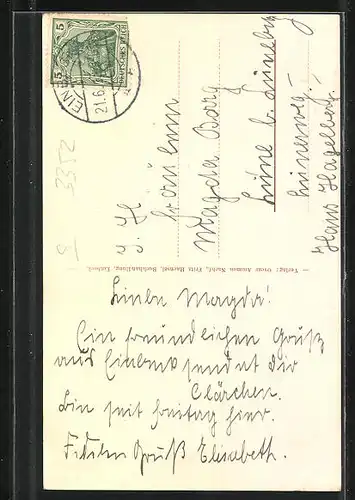 5 5
DEUTSCHES REICH
EINB
21.6.
S 3352
I. H.
Fräulein
Magda Barg
Lüne b. Lüneburg
Lünerweg
Haus Hagelberg.
Verlag: Oscar Assmann Nachf., Fritz Buchhandlung, Einbeck.
Liebe Magda!
Ein freundlichen Gruß
aus Einbeck sendet dir
Clärchen.
Bin seit Freitag hier.
Fidelen Gruß Elisabeth.